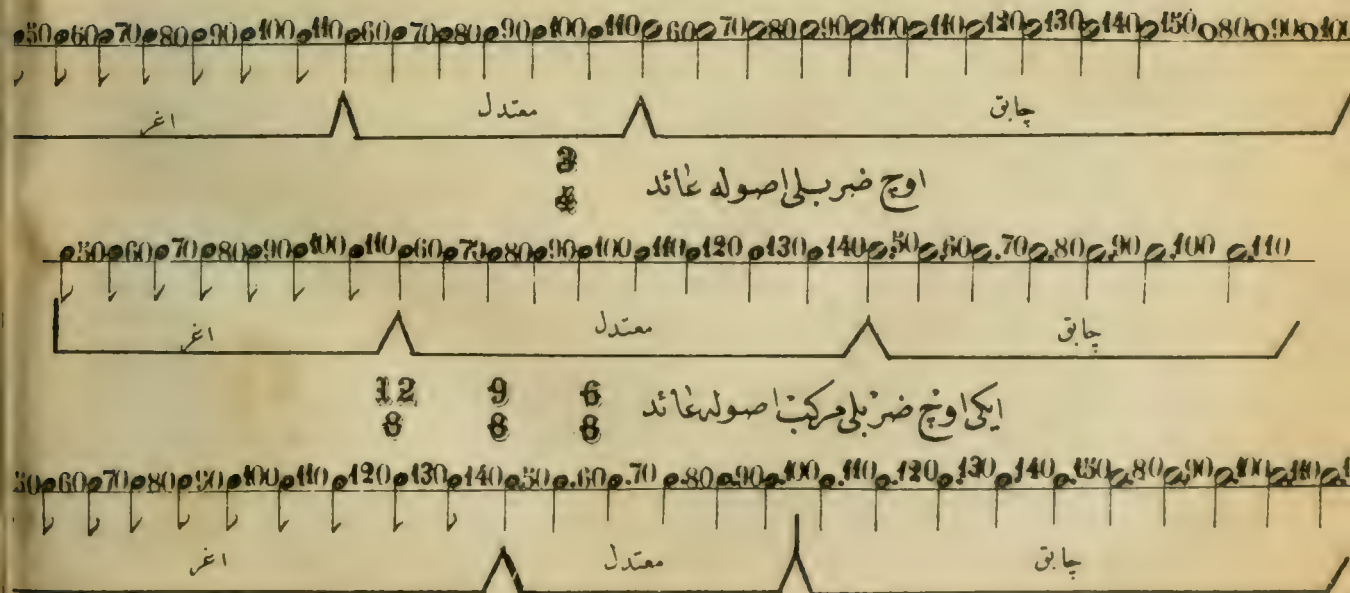 50 60 70 80 90 100 110 60 70 80 90 100 110 60 70 80 90 100 110 120 130 140 150 80 90 100
اغر معتدل چابق
اوچ ضربلی اصوله عائد 3 4
50 60 70 80 90 100 110 60 70 80 90 100 110 120 130 140 50 60 70 80 90 100 110
اغر معتدل چابق
ایکی اوچ ضربلی مرکب اصوله عائد 6 8 9 8 12 8
50 60 70 80 90 100 110 120 130 140 50 60 70 80 90 100 110 120 130 140 150 80 90 100 110
اغر معتدل چابق